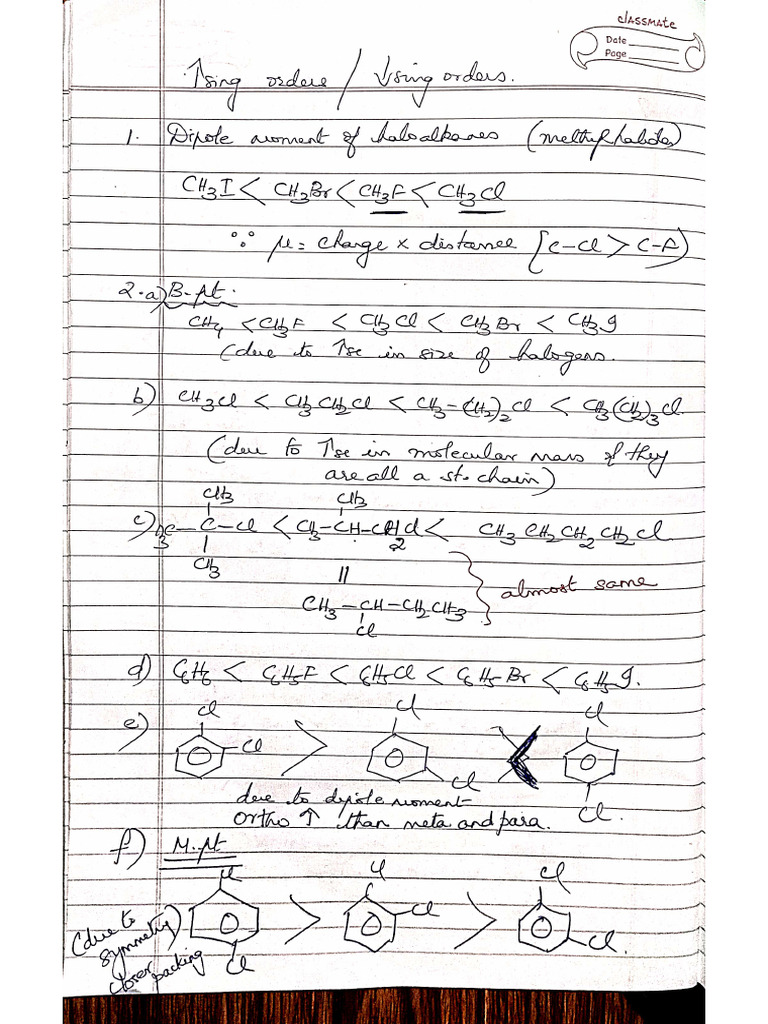 classmate
Date
Page
↑sing orders / ↓sing orders.
1. Dipole moment of haloalkanes (methyl halides)
CH3I < CH3Br < CH3F < CH3Cl
∵ μ = charge × distance [C-Cl > C-F)
2.a) B.pt.
CH4 < CH3F < CH3Cl < CH3Br < CH3I
(due to ↑se in size of halogens.
b) CH3Cl < CH3CH2Cl < CH3-(CH2)2Cl < CH3(CH2)3Cl.
(due to ↑se in molecular mass if they
are all a st. chain)
CH3 CH3
c) H3C-C-Cl < CH3-CH-CH2Cl < CH3CH2CH2CH2Cl
CH3 || almost same
CH3-CH-CH2CH3
Cl
d) C6H6 < C6H5F < C6H5Cl < C6H5-Br < C6H5I.
Cl Cl Cl
e) Cl > <
Cl Cl.
due to dipole moment
ortho ↑ than meta and para.
f) M.pt
Cl Cl Cl
> Cl > Cl.
Cl
(due to
symmetry)
closer
packing